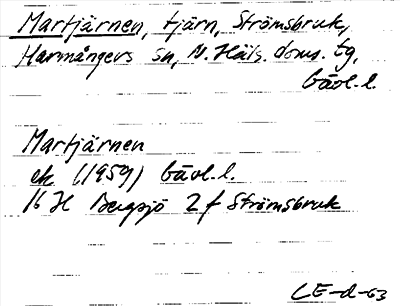 Martjärnen, tjärn, Strömsbruk,
Harmångers sn, N. Häls. doms. tg,
Gävl. l.
Martjärnen
ek (1959) Gävl. l.
16 H Bergsjö 2 f Strömsbruk
LE-d-63